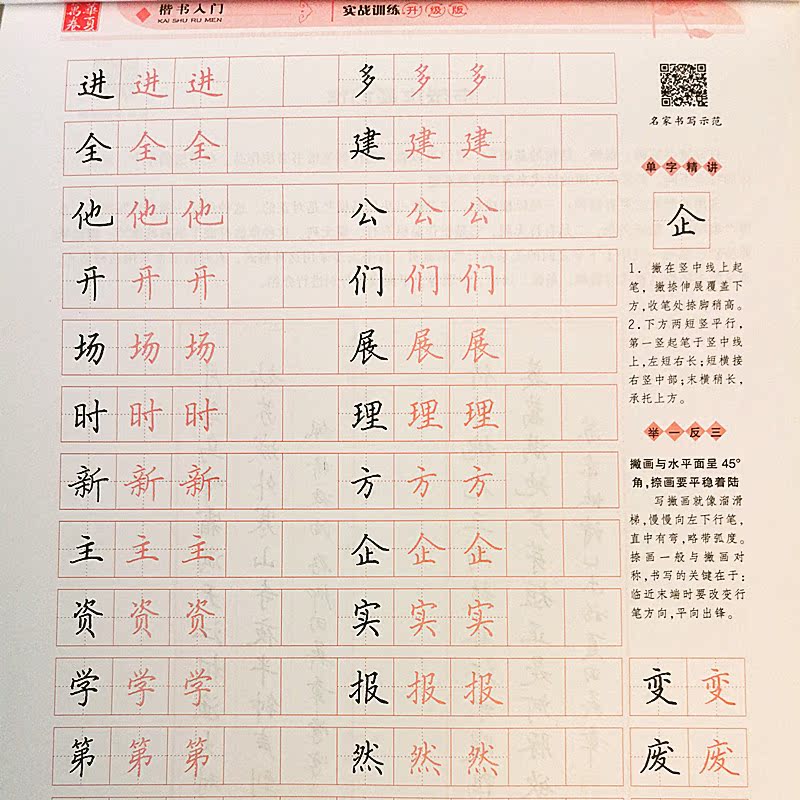 华夏万卷
楷书入门
KAI SHU RU MEN
实战训练升级版
进进进 多多多
全全全 建建建
他他他 公公公
开开开 们们们
场场场 展展展
时时时 理理理
新新新 方方方
主主主 企企企
资资资 实实实
学学学 报报报
第第第 然然然
名家书写示范
单字精讲
企
1. 撇在竖中线上起
笔，撇捺伸展覆盖下
方,收笔处捺脚稍高。
2.下方两短竖平行,
第一竖起笔于竖中线
上,左短右长;短横接
右竖中部;末横稍长,
承托上方。
举一反三
撇画与水平面呈 45°
角,捺画要平稳着陆
写撇画就像溜滑
梯,慢慢向左下行笔,
直中有弯,略带弧度。
捺画一般与撇画对
称,书写的关键在于:
临近末端时要改变行
笔方向,平向出锋。
变变
废废